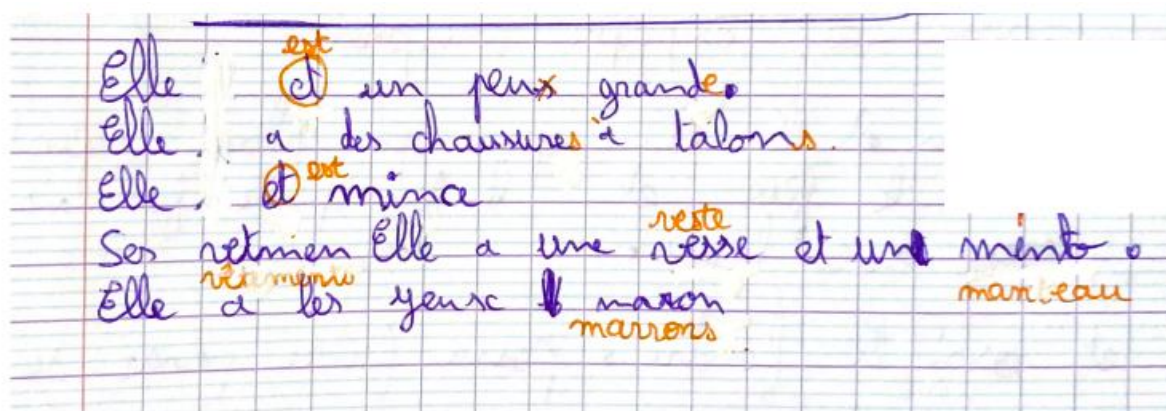 est
Elle et un peux grande.
Elle a des chausures à talons.
est
Elle et mince
veste
Ses vetmien Elle a une vesse et un mento.
vêtements manteau
Elle a les yeux maron
marrons